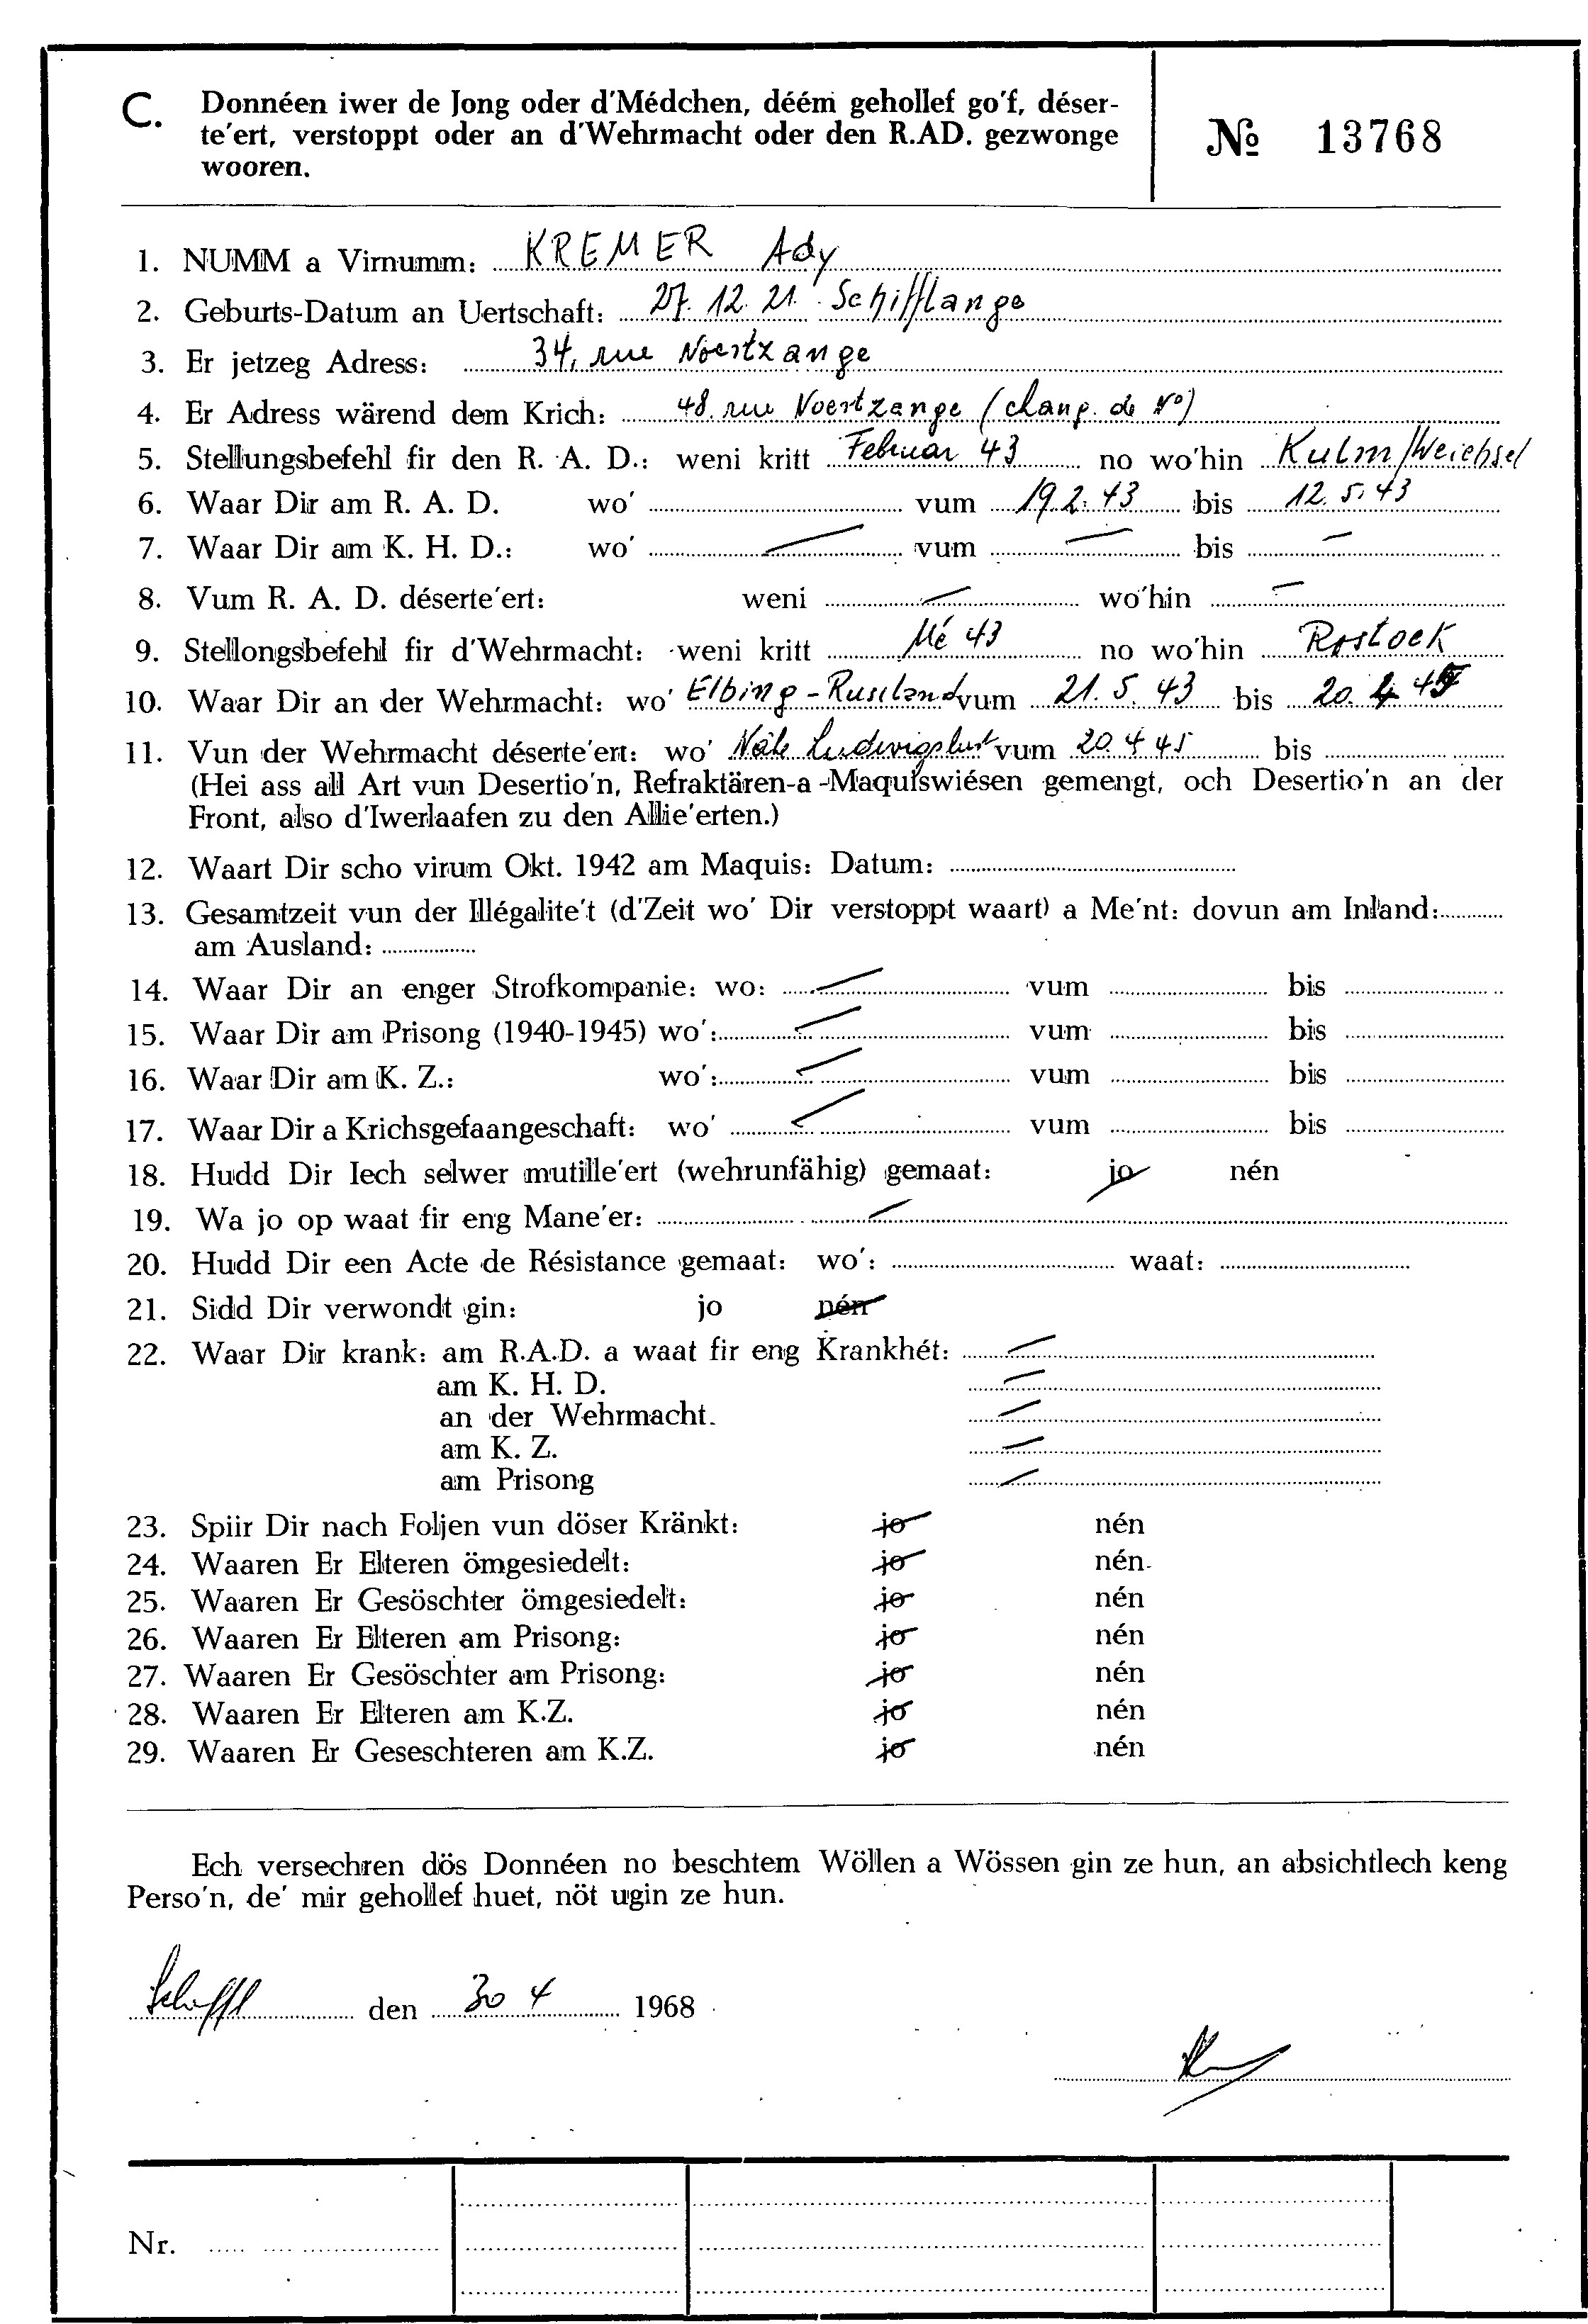 C. Donnéen iwer de Jong oder d'Médchen, déém gehollef go'f, déser-
te'ert, verstoppt oder an d'Wehrmacht oder den R.AD. gezwonge
wooren.
№ 13768
1. NUMM a Virnumm: KREMER Ady
2. Geburts-Datum an Uertschaft: 27. 12. 21. Schifflange
3. Er jetzeg Adress: 34, rue Noertzange
4. Er Adress wärend dem Krich: 48. rue Noertzange (chang. de No)
5. Stellungsbefehl fir den R. A. D.: weni kritt Februar 43 no wo'hin Kulm/Weichsel
6. Waar Dir am R. A. D. wo' vum 19.2.43 bis 12.5.43
7. Waar Dir am K. H. D.: wo' — vum — bis —
8. Vum R. A. D. déserte'ert: weni — wo'hin —
9. Stellongsbefehl fir d'Wehrmacht: weni kritt Mé 43 no wo'hin Rostock
10. Waar Dir an der Wehrmacht: wo' Elbing - Russland vum 21. 5. 43 bis 20. 4. 45
11. Vun der Wehrmacht déserte'ert: wo' Nähe Ludwigslust vum 20.4.45 bis
(Hei ass all Art vun Desertio'n, Refraktären-a -Maquiswiésen gemengt, och Desertio'n an der
Front, also d'Iwerlaafen zu den Allie'erten.)
12. Waart Dir scho virum Okt. 1942 am Maquis: Datum:
13. Gesamtzeit vun der Illégalite't (d'Zeit wo' Dir verstoppt waart) a Me'nt: dovun am Inland:
am Ausland:
14. Waar Dir an enger Strofkompanie: wo: — vum bis
15. Waar Dir am Prisong (1940-1945) wo': — vum bis
16. Waar Dir am K. Z.: wo': — vum bis
17. Waar Dir a Krichsgefaangeschaft: wo' — vum bis
18. Hudd Dir Iech selwer mutille'ert (wehrunfähig) gemaat: jo nén
19. Wa jo op waat fir eng Mane'er: —
20. Hudd Dir een Acte de Résistance gemaat: wo': waat:
21. Sidd Dir verwondt gin: jo nén
22. Waar Dir krank: am R.A.D. a waat fir eng Krankhét: —
am K. H. D. —
an der Wehrmacht. —
am K. Z. —
am Prisong —
23. Spiir Dir nach Foljen vun döser Kränkt: jo nén
24. Waaren Er Elteren ömgesiedelt: jo nén
25. Waaren Er Gesöschter ömgesiedelt: jo nén
26. Waaren Er Elteren am Prisong: jo nén
27. Waaren Er Gesöschter am Prisong: jo nén
28. Waaren Er Elteren am K.Z. jo nén
29. Waaren Er Geseschteren am K.Z. jo nén
Ech versechren dös Donnéen no beschtem Wöllen a Wössen gin ze hun, an absichtlech keng
Perso'n, de' mir gehollef huet, nöt ugin ze hun.
Schiffl den 30 4 1968
Nr.